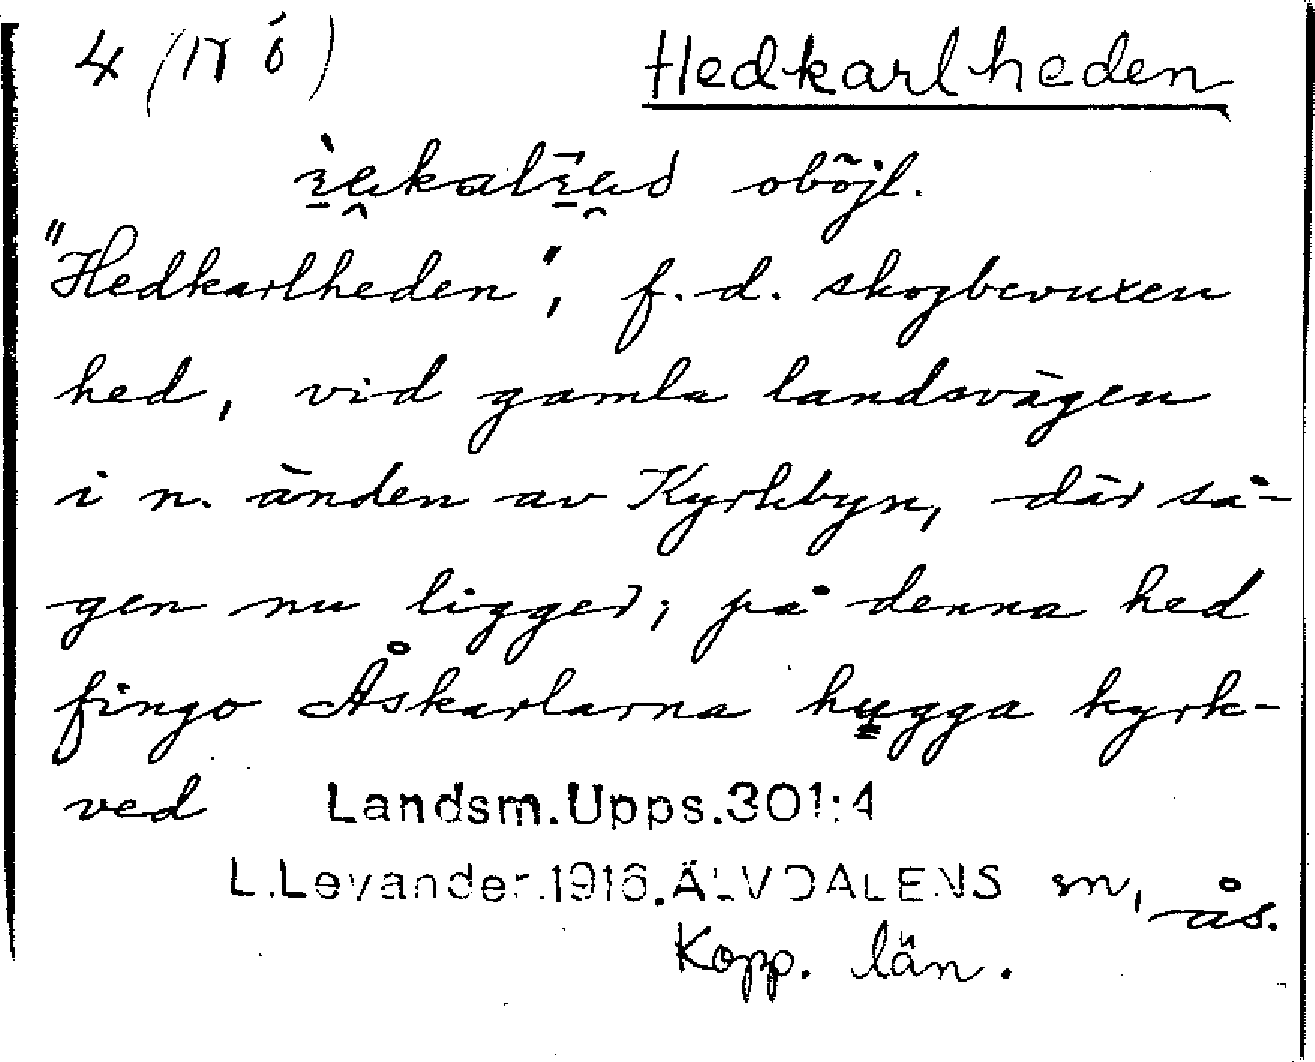 4 (IV ö) Hedkarlheden
oböjl.
"Hedkarlheden", f.d. skogbevuxen
hed, vid gamla landsvägen
i n. änden av Kyrkbyn, där så-
gen nu ligger; på denna hed
fingo Åskarlarna hugga kyrk-
ved Landsm.Upps.301:4
L.Levander.1916.ÄLVDALENS sn, ås.
Kopp. län.